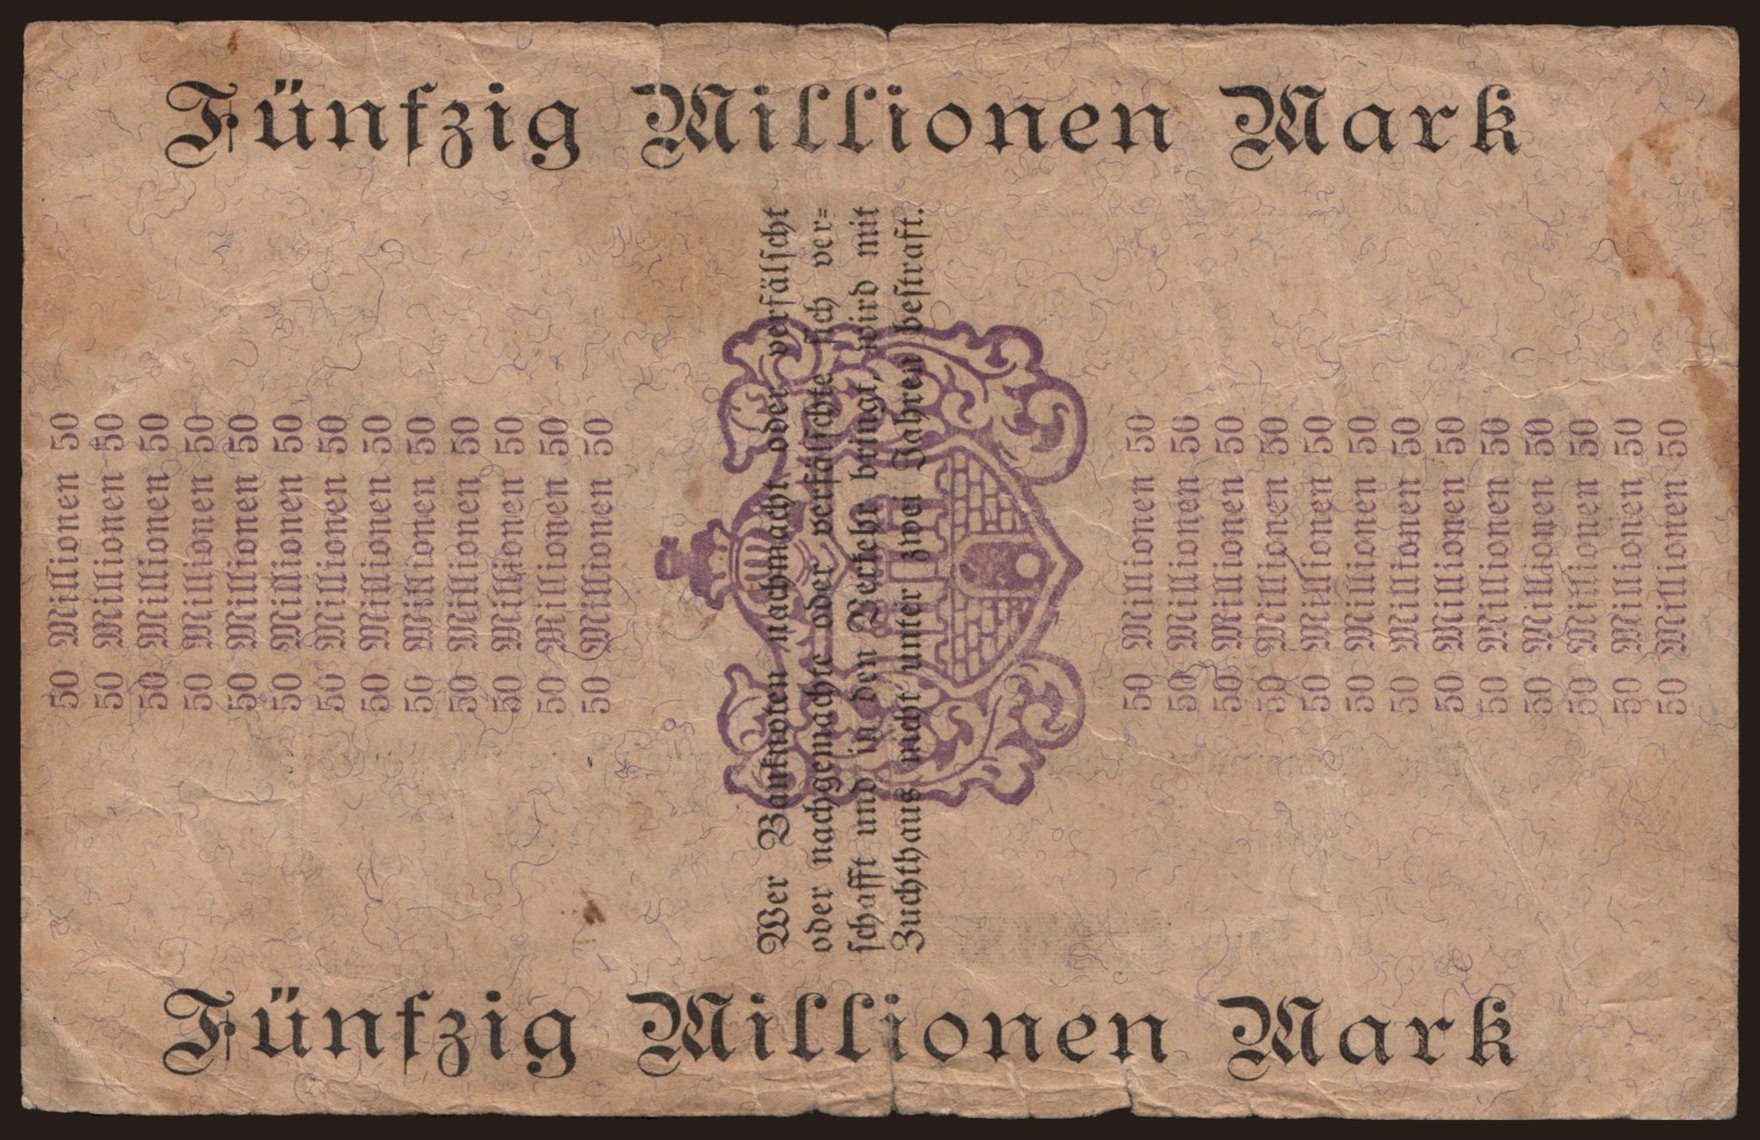 Fünfzig Millionen Mark
50 Millionen 50
50 Millionen 50
50 Millionen 50
50 Millionen 50
50 Millionen 50
50 Millionen 50
50 Millionen 50
50 Millionen 50
50 Millionen 50
50 Millionen 50
50 Millionen 50
50 Millionen 50
50 Millionen 50
Wer Banknoten nachmacht oder verfälscht
oder nachgemachte oder verfälschte sich ver=
schafft und in den Verkehr bringt, wird mit
Zuchthaus nicht unter zwei Jahren bestraft.
50 Millionen 50
50 Millionen 50
50 Millionen 50
50 Millionen 50
50 Millionen 50
50 Millionen 50
50 Millionen 50
50 Millionen 50
50 Millionen 50
50 Millionen 50
50 Millionen 50
50 Millionen 50
50 Millionen 50
Fünfzig Millionen Mark